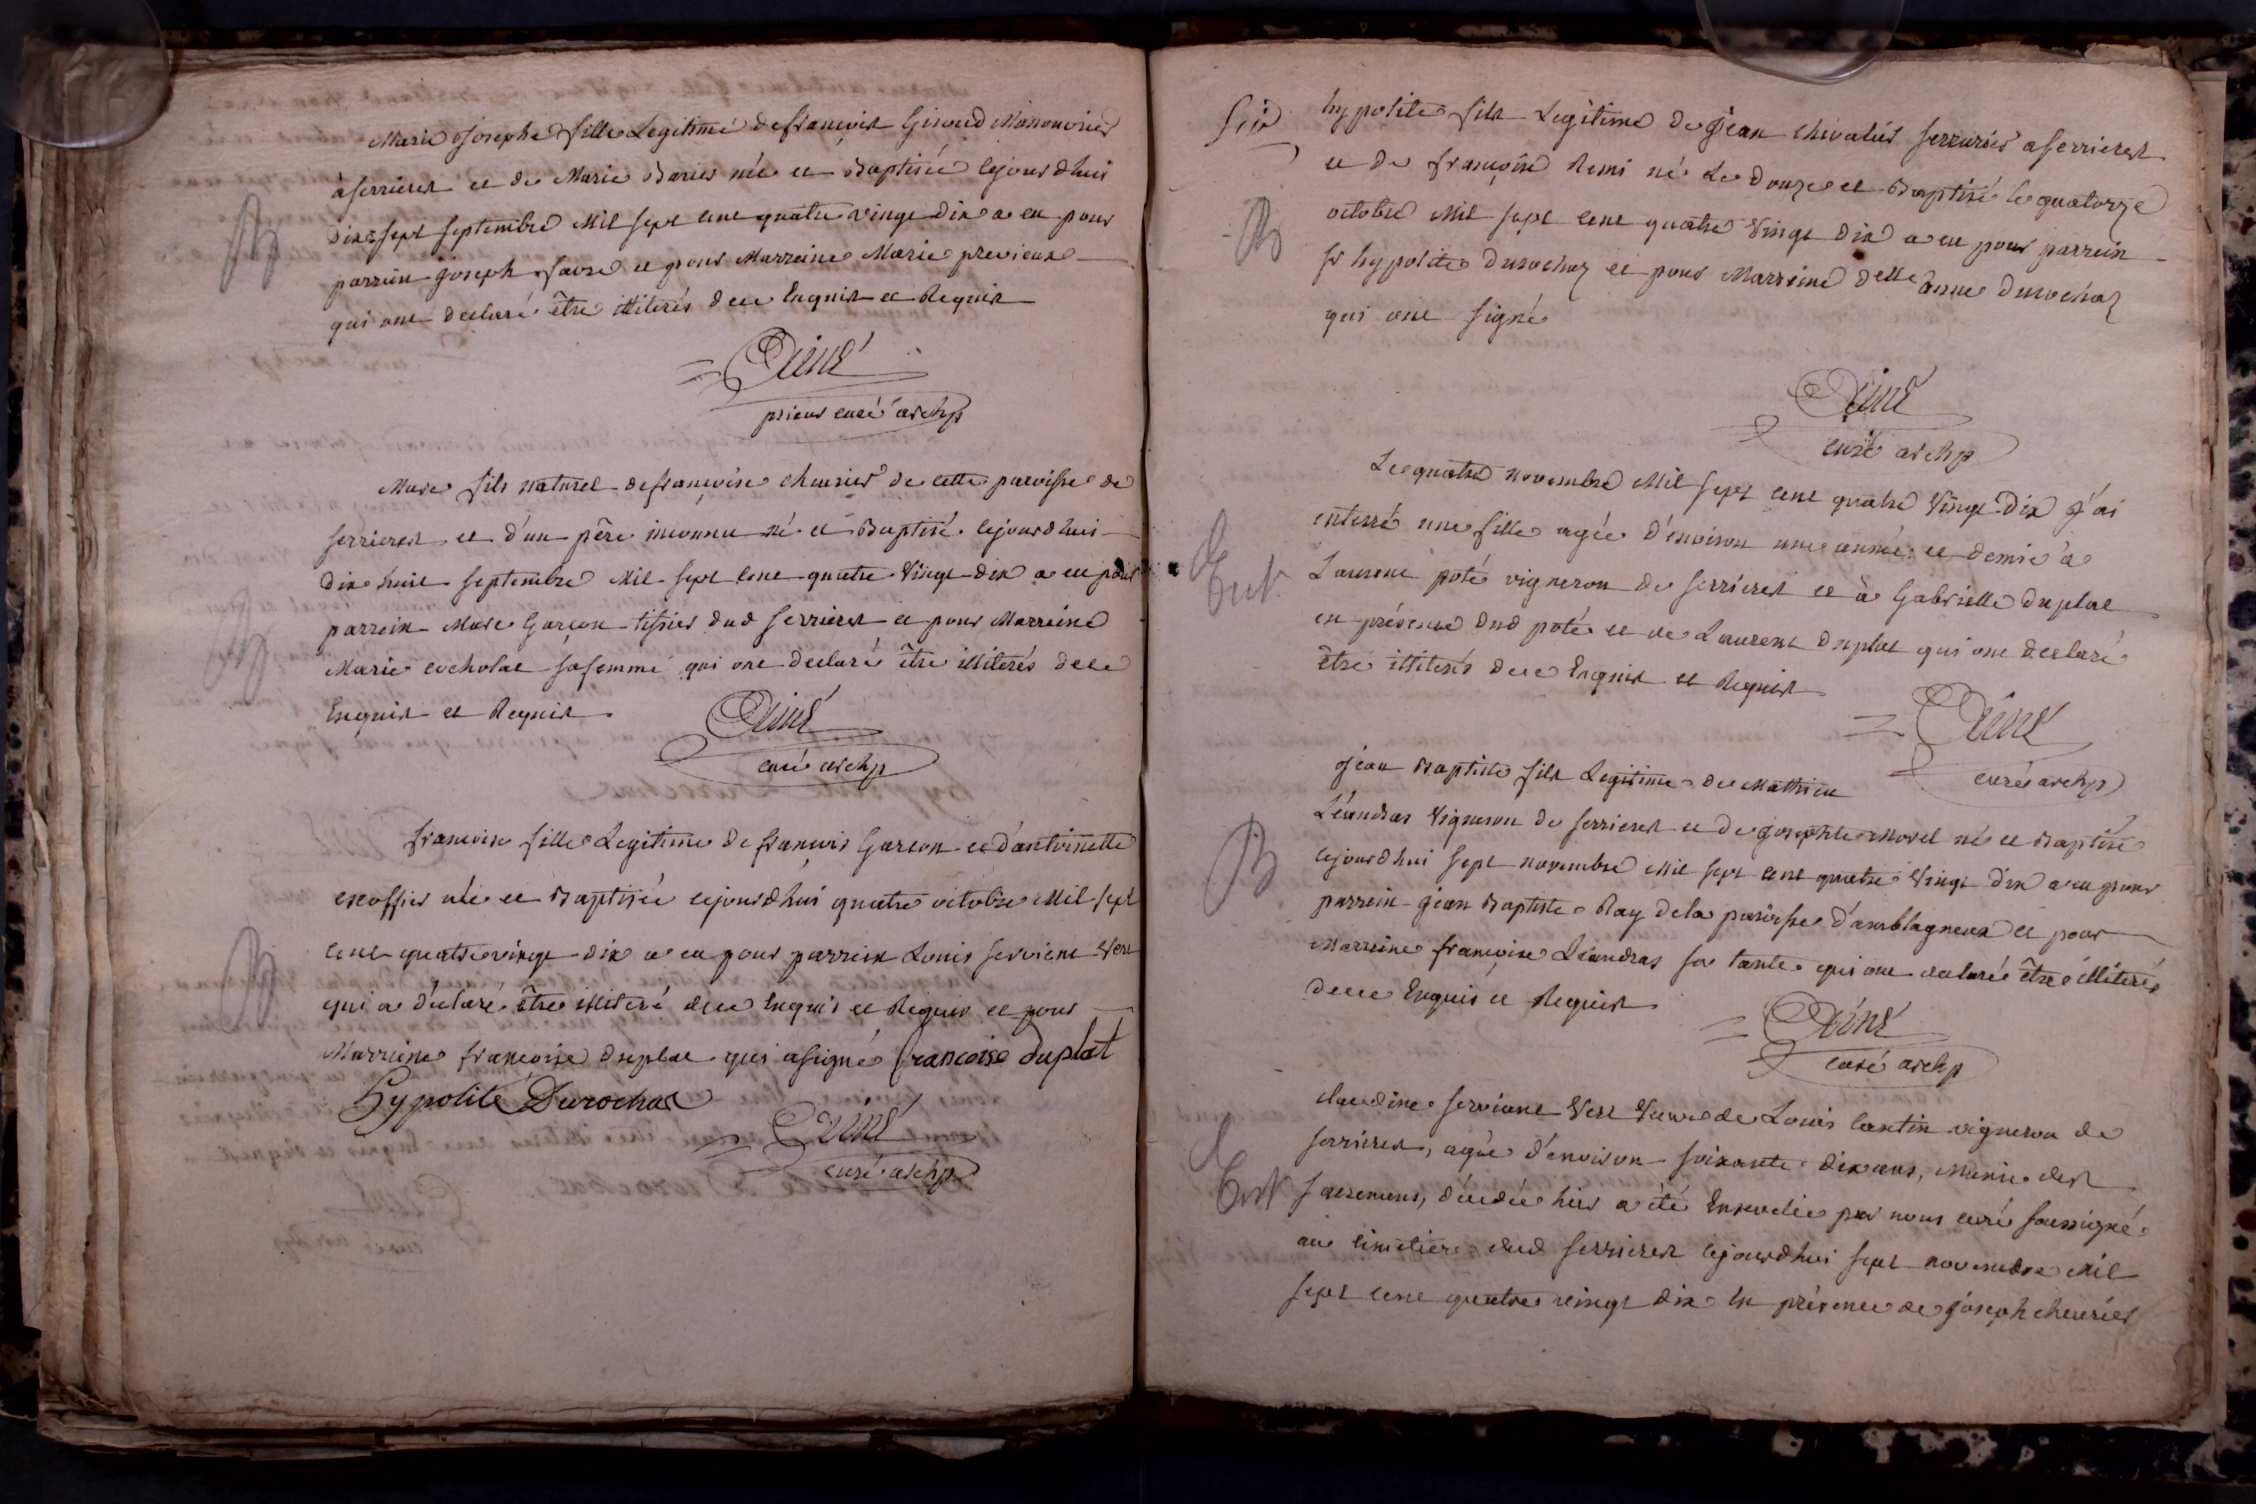 Marie Josephe fille Legitime de francois Giroud Manouvrier
à serrieres et de Marie Barier née et Baptisée cejourdhui
dix sept septembre Mil sept cent quatre vingt dix a eu pour
parrein joseph favre et pour Marreine Marie previeux
qui ont declaré être illiterés de ce Enquis et Requis
prieur curé archp
B
Marc fils naturel de francoise cheurier de cette paroisse de
serrieres et d'un père inconnu né et Baptisé cejourdhui
dix huit septembre Mil sept cent quatre Vingt dix a eu pour
parrein Marc Garçon tissier dud serrieres et pour Marreine
Marie cocholat sa femme qui ont declaré être illiterés de ce
Enquis et Requis
curé archp
B
francoise fille Legitime de francois Garcon et d'antoinette
escoffier née et Baptisée cejourdhui quatre octobre Mil sept
cent quatre vingt dix a eu pour parrein Louis servient Vert
qui a déclaré être illiteré de ce Enquis et Requis et pour
Marreine francoise duplat qui a signé francoise duplat
hypolite Durochat
curé archp
B
hypolite fils Legitime de Jean chivalier serrurier a serrieres
et de francoise Remi né Le douze et Baptisé le quatorze
octobre Mil sept cent quatre Vingt dix a eu pour parrein
sr hypolite durochaz et pour Marreine delle anne durochaz
qui ont signé
curé archp
B
Le quatre novembre Mil sept cent quatre Vingt Dix j'ai
enterré une fille agée d'environ une année et demie à
Laurent poté vigneron de serrieres et à Gabrielle duplat
en présence dud poté et de Laurent duplat qui ont declaré
être illiterés de ce Enquis et Requis
curé archp
Ent
Jean Baptiste fils Legitime de Mathieu
Léandras Vigneron de serrieres et de josephte Morel né et Baptisé
cejourdhui sept novembre Mil sept cent quatre Vingt dix a eu pour
parrein jean Baptiste Ray de la paroisse d'amblagneux et pour
Marreine francoise Léandras sa tante qui ont declaré être illiterés
de ce Enquis et Requis
curé archp
B
claudine serviant Vert Veuve de Louis cantin vigneron de
serrieres, agée d'environ soixante dix ans, Munie des
sacremens, décédée hier a été Ensevelie par nous curé soussigné
au cimetiere dud serrieres cejourdhui sept novembre Mil
sept cent quatre vingt dix En présence de joseph cheurier
Ent